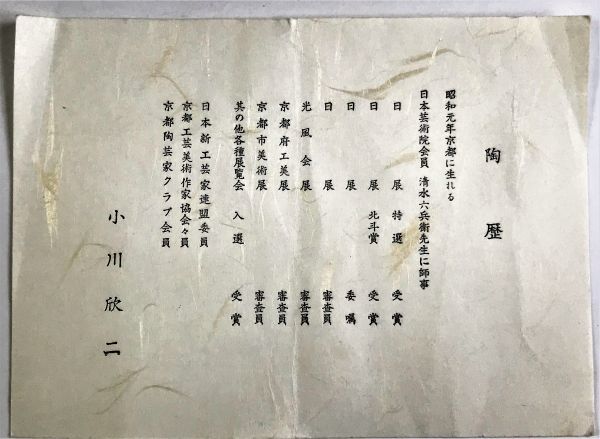 陶歴
昭和元年京都に生れる
日本芸術院会員 清水六兵衛先生に師事
日展 特選 受賞
日展 北斗賞 受賞
日展 委嘱
日展 審査員
光風会展 審査員
京都府工美展 審査員
京都市美術展 審査員
其の他各種展覧会 入選 受賞
日本新工芸家連盟委員
京都工芸美術作家協会々員
京都陶芸家クラブ会員
小川欣二